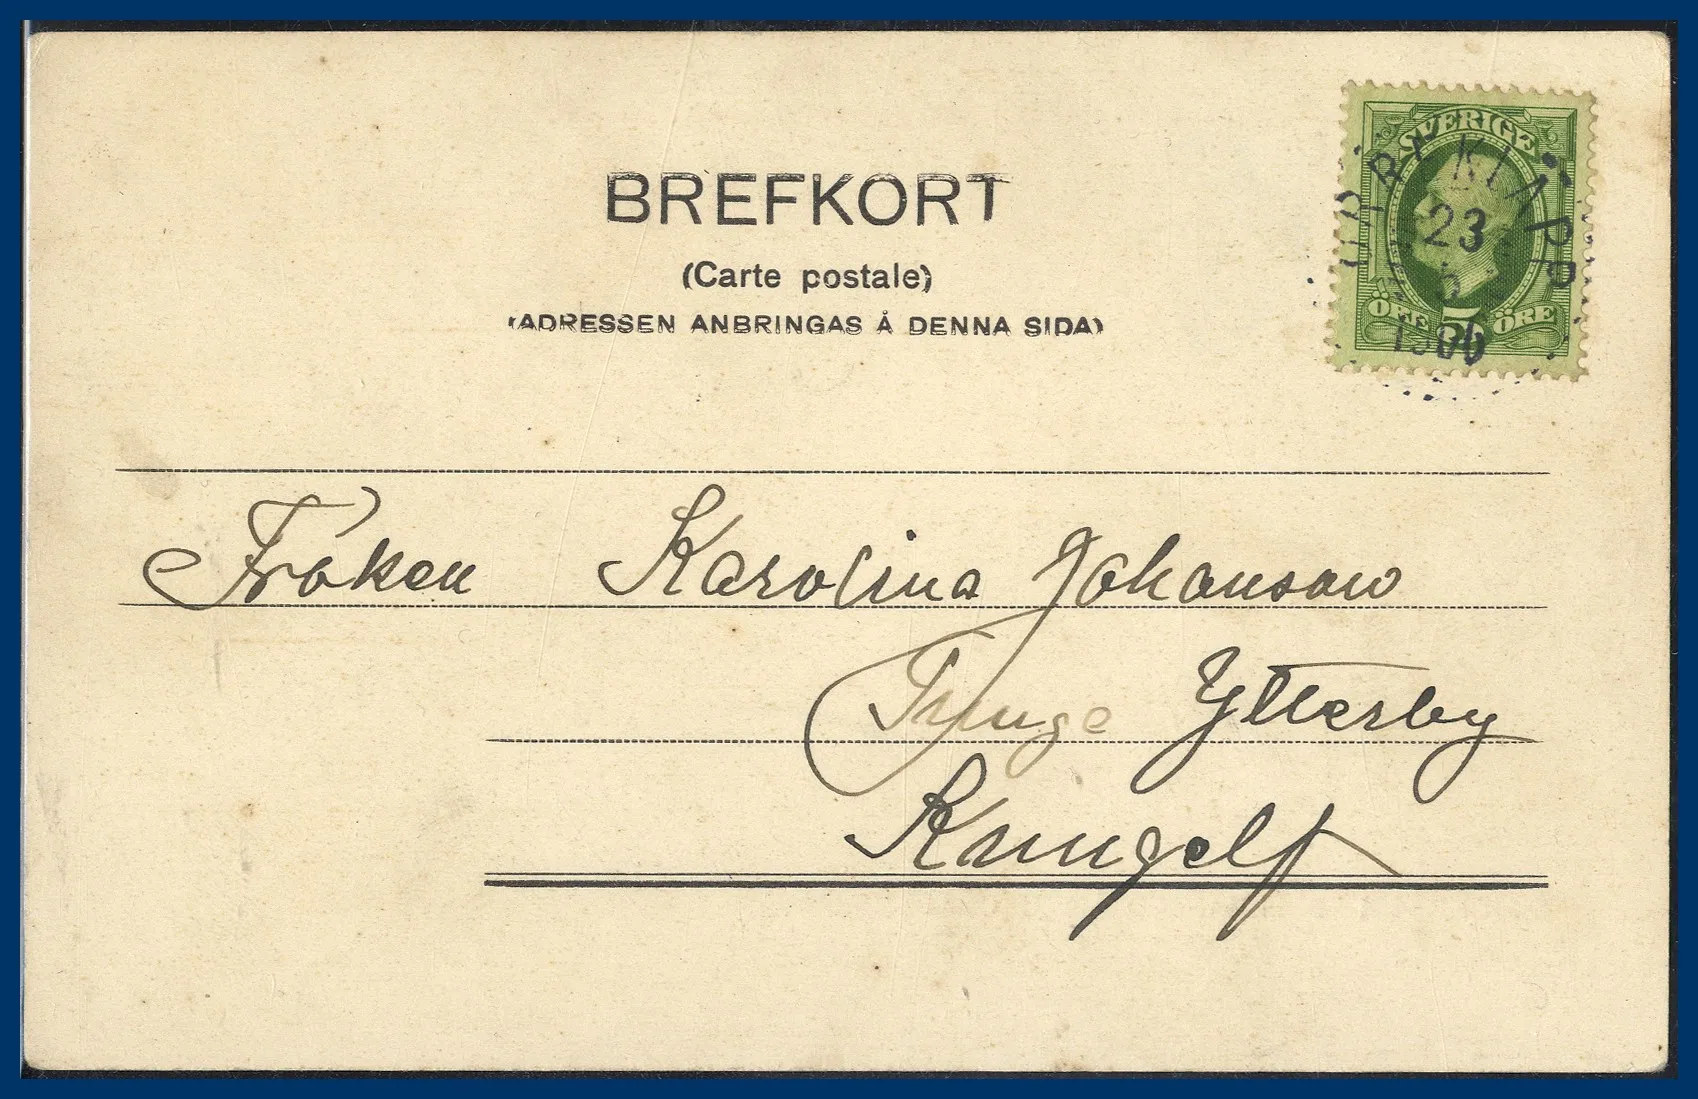 BREFKORT
(Carte postale)
(ADRESSEN ANBRINGAS Å DENNA SIDA)
SVERIGE
23
5
1906
ÖRE 5 ÖRE
Fröken Karolina Johansson
Tunge Ytterby
Kungelf